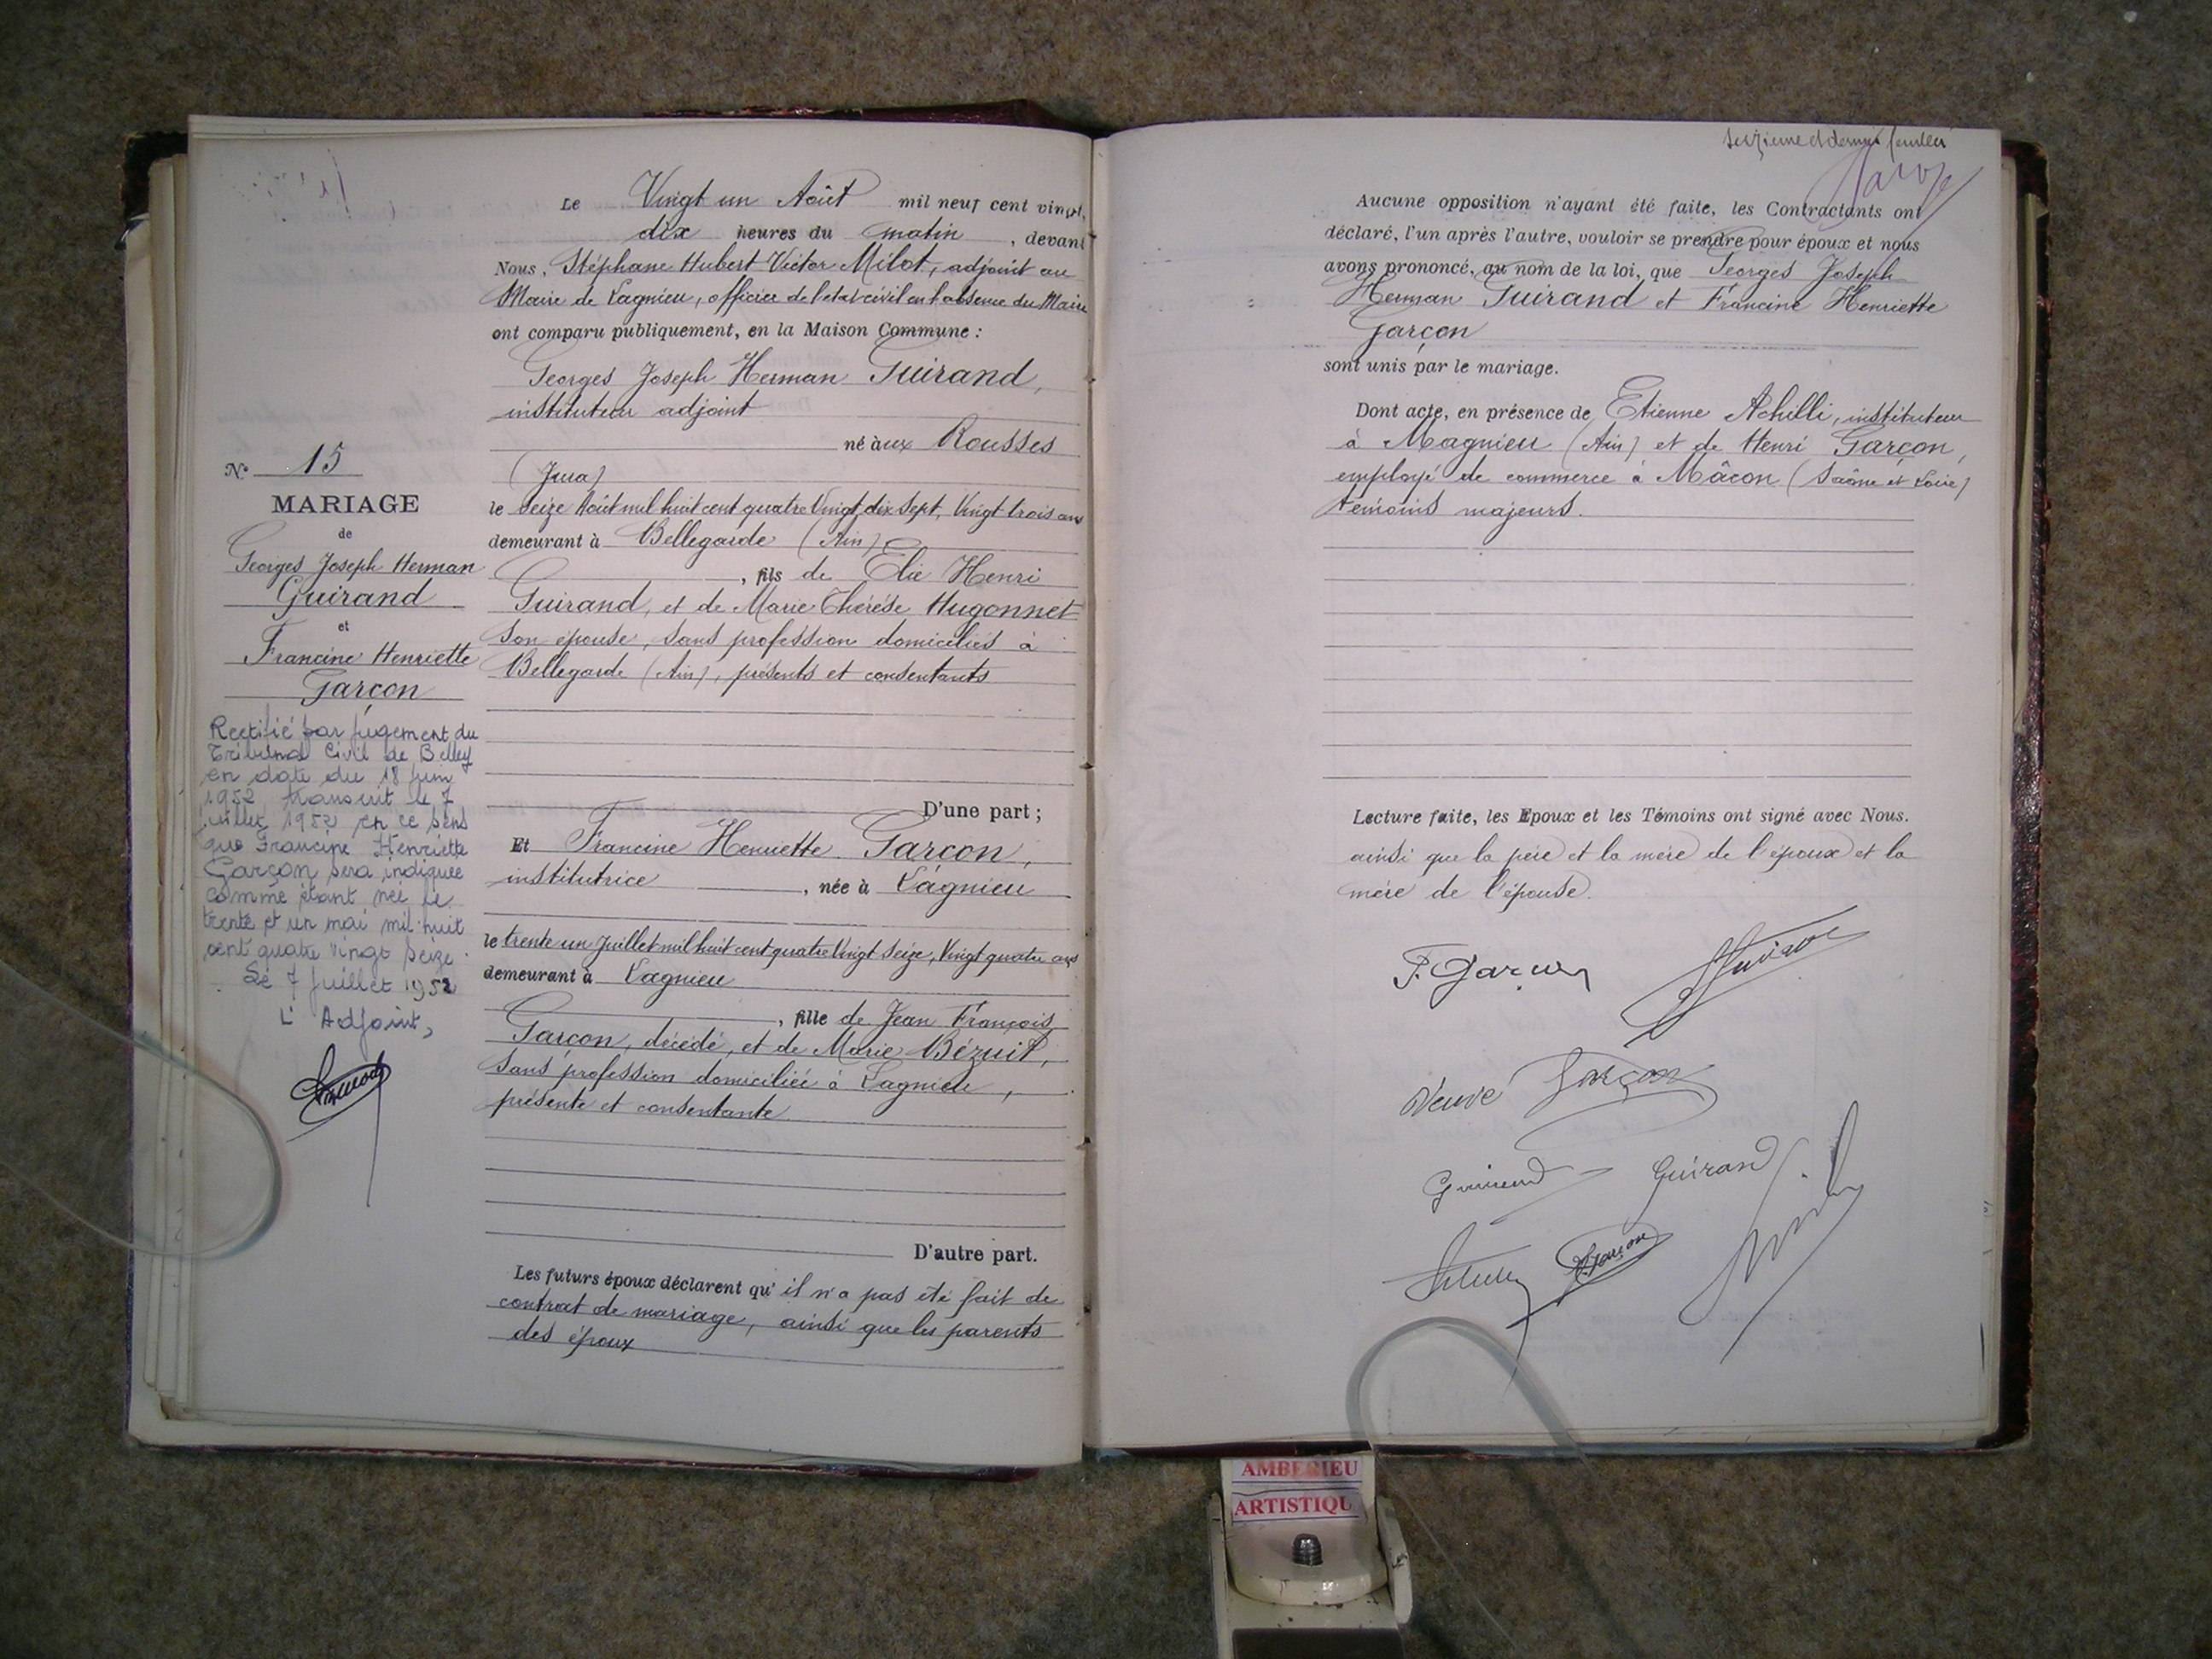 Le Vingt un Août mil neuf cent vingt,
dix heures du matin, devant
Nous, Stéphane Hubert Victor Milot, adjoint au
Maire de Lagnieu, officier de l'état civil en l'absence du Maire
ont comparu publiquement, en la Maison Commune :
Georges Joseph Herman Guirand,
instituteur adjoint
né àux Rousses
(Jura)
le seize Août mil huit cent quatre Vingt dix sept, Vingt trois ans
demeurant à Bellegarde (Ain)
, fils de Elie Henri
Guirand, et de Marie Thérèse Hugonnet
son épouse, sans profession domiciliés à
Bellegarde (Ain), présents et consentants
D'une part ;
Et Francine Henriette Garçon,
institutrice, née à Lagnieu
le trente un Juillet mil huit cent quatre Vingt seize, Vingt quatre ans
demeurant à Lagnieu
, fille de Jean François
Garçon, décédé, et de Marie Bézuit,
sans profession domiciliée à Lagnieu,
présente et consentante
D'autre part.
Les futurs époux déclarent qu'il n'a pas été fait de
contrat de mariage, ainsi que les parents
des époux
N° 15
MARIAGE
de
Georges Joseph Herman
Guirand
et
Francine Henriette
Garçon
Rectifié par jugement du
Tribunal Civil de Belley
en date du 18 juin
1952 transcrit le 7
juillet 1952 en ce sens
que Francine Henriette
Garçon sera indiquée
comme étant née le
trente et un mai mil huit
cent quatre vingt seize.
Le 7 juillet 1952
L'Adjoint,
Seizième et dernier feuillet
Aucune opposition n'ayant été faite, les Contractants ont
déclaré, l'un après l'autre, vouloir se prendre pour époux et nous
avons prononcé, au nom de la loi, que Georges Joseph
Herman Guirand et Francine Henriette
Garçon
sont unis par le mariage.
Dont acte, en présence de Etienne Achilli, instituteur
à Magnieu (Ain) et de Henri Garçon,
employé de commerce à Mâcon (Saône et Loire)
témoins majeurs.
Lecture faite, les Epoux et les Témoins ont signé avec Nous.
ainsi que le père et la mère de l'époux et la
mère de l'épouse.
F. Garçon
Veuve Garçon
Guirand Guirand
H. Garçon
AMBERIEU
ARTISTIQU